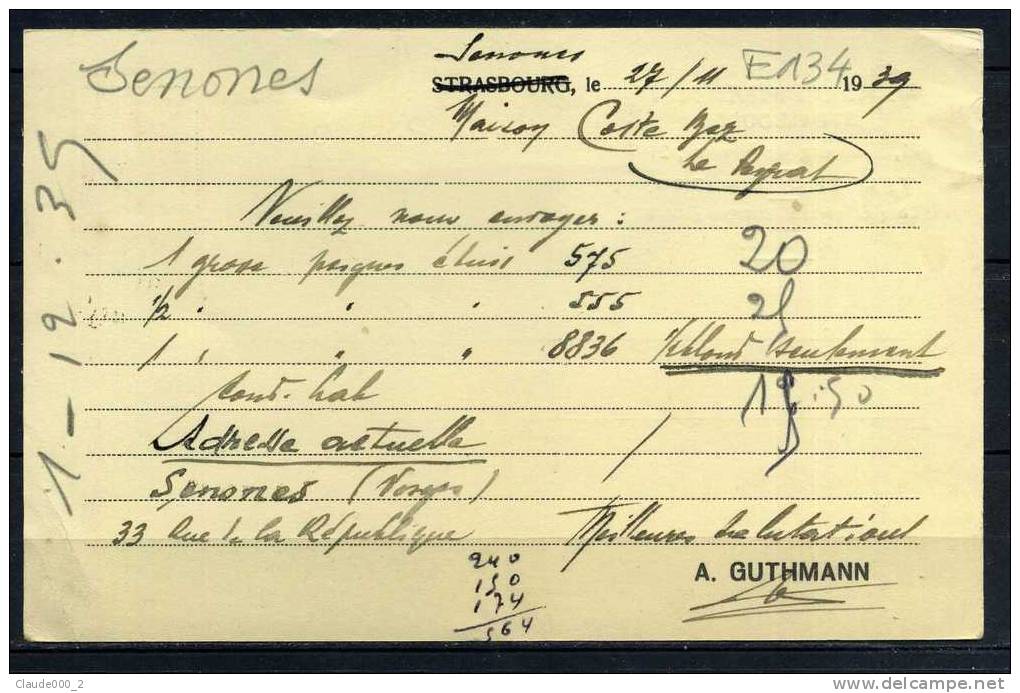 Senones
Senones
STRASBOURG, le 27/11 E134 1939
Maison Coste
Le Peyrat
1-12.39
Veuillez nous envoyer :
1 grosse peignes étuis 575 20
1/2 " " " 555 25
1 " " " 8836 blond seulement
Cond. hab 19.50
Adresse actuelle
Senones (Vosges)
33 Rue de la République Meilleures salutations
240
150
174
564
A. GUTHMANN
Claude000_2
delcampe.net